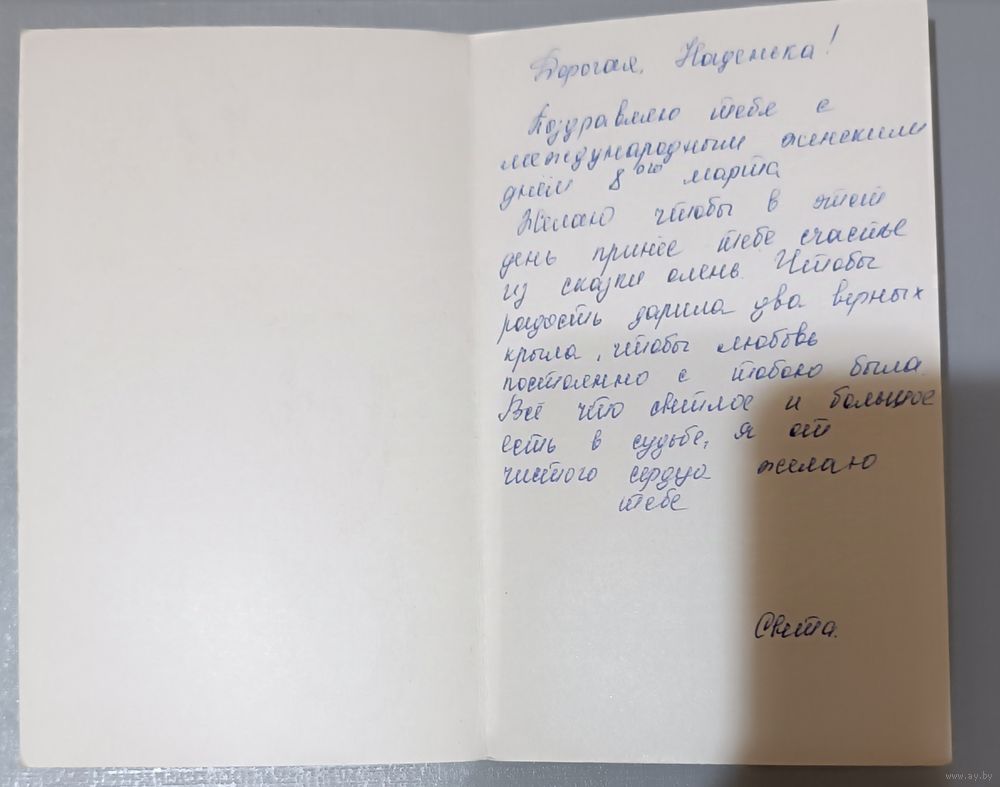 Дорогая, Наденька!
Поздравляю тебя с
международным женским
днём 8ого марта
Желаю чтобы в этот
день принёс тебе счастье
из сказки олень. Чтобы
радость дарила два верных
крыла, чтобы любовь
постоянно с тобою была.
Всё что светлое и большое
есть в судьбе, я от
чистого сердца желаю
тебе
Света.
www.ay.by